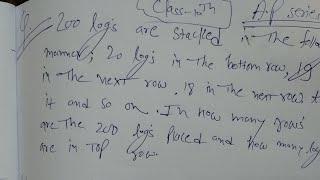 Class-10th
A.P series
Q 200 logs are stacked in the follo
manner; 20 logs in the bottom row, 19
in the next row. 18 in the next row t
it and so on. In how many rows
are the 200 logs placed and how many log
are in top row.